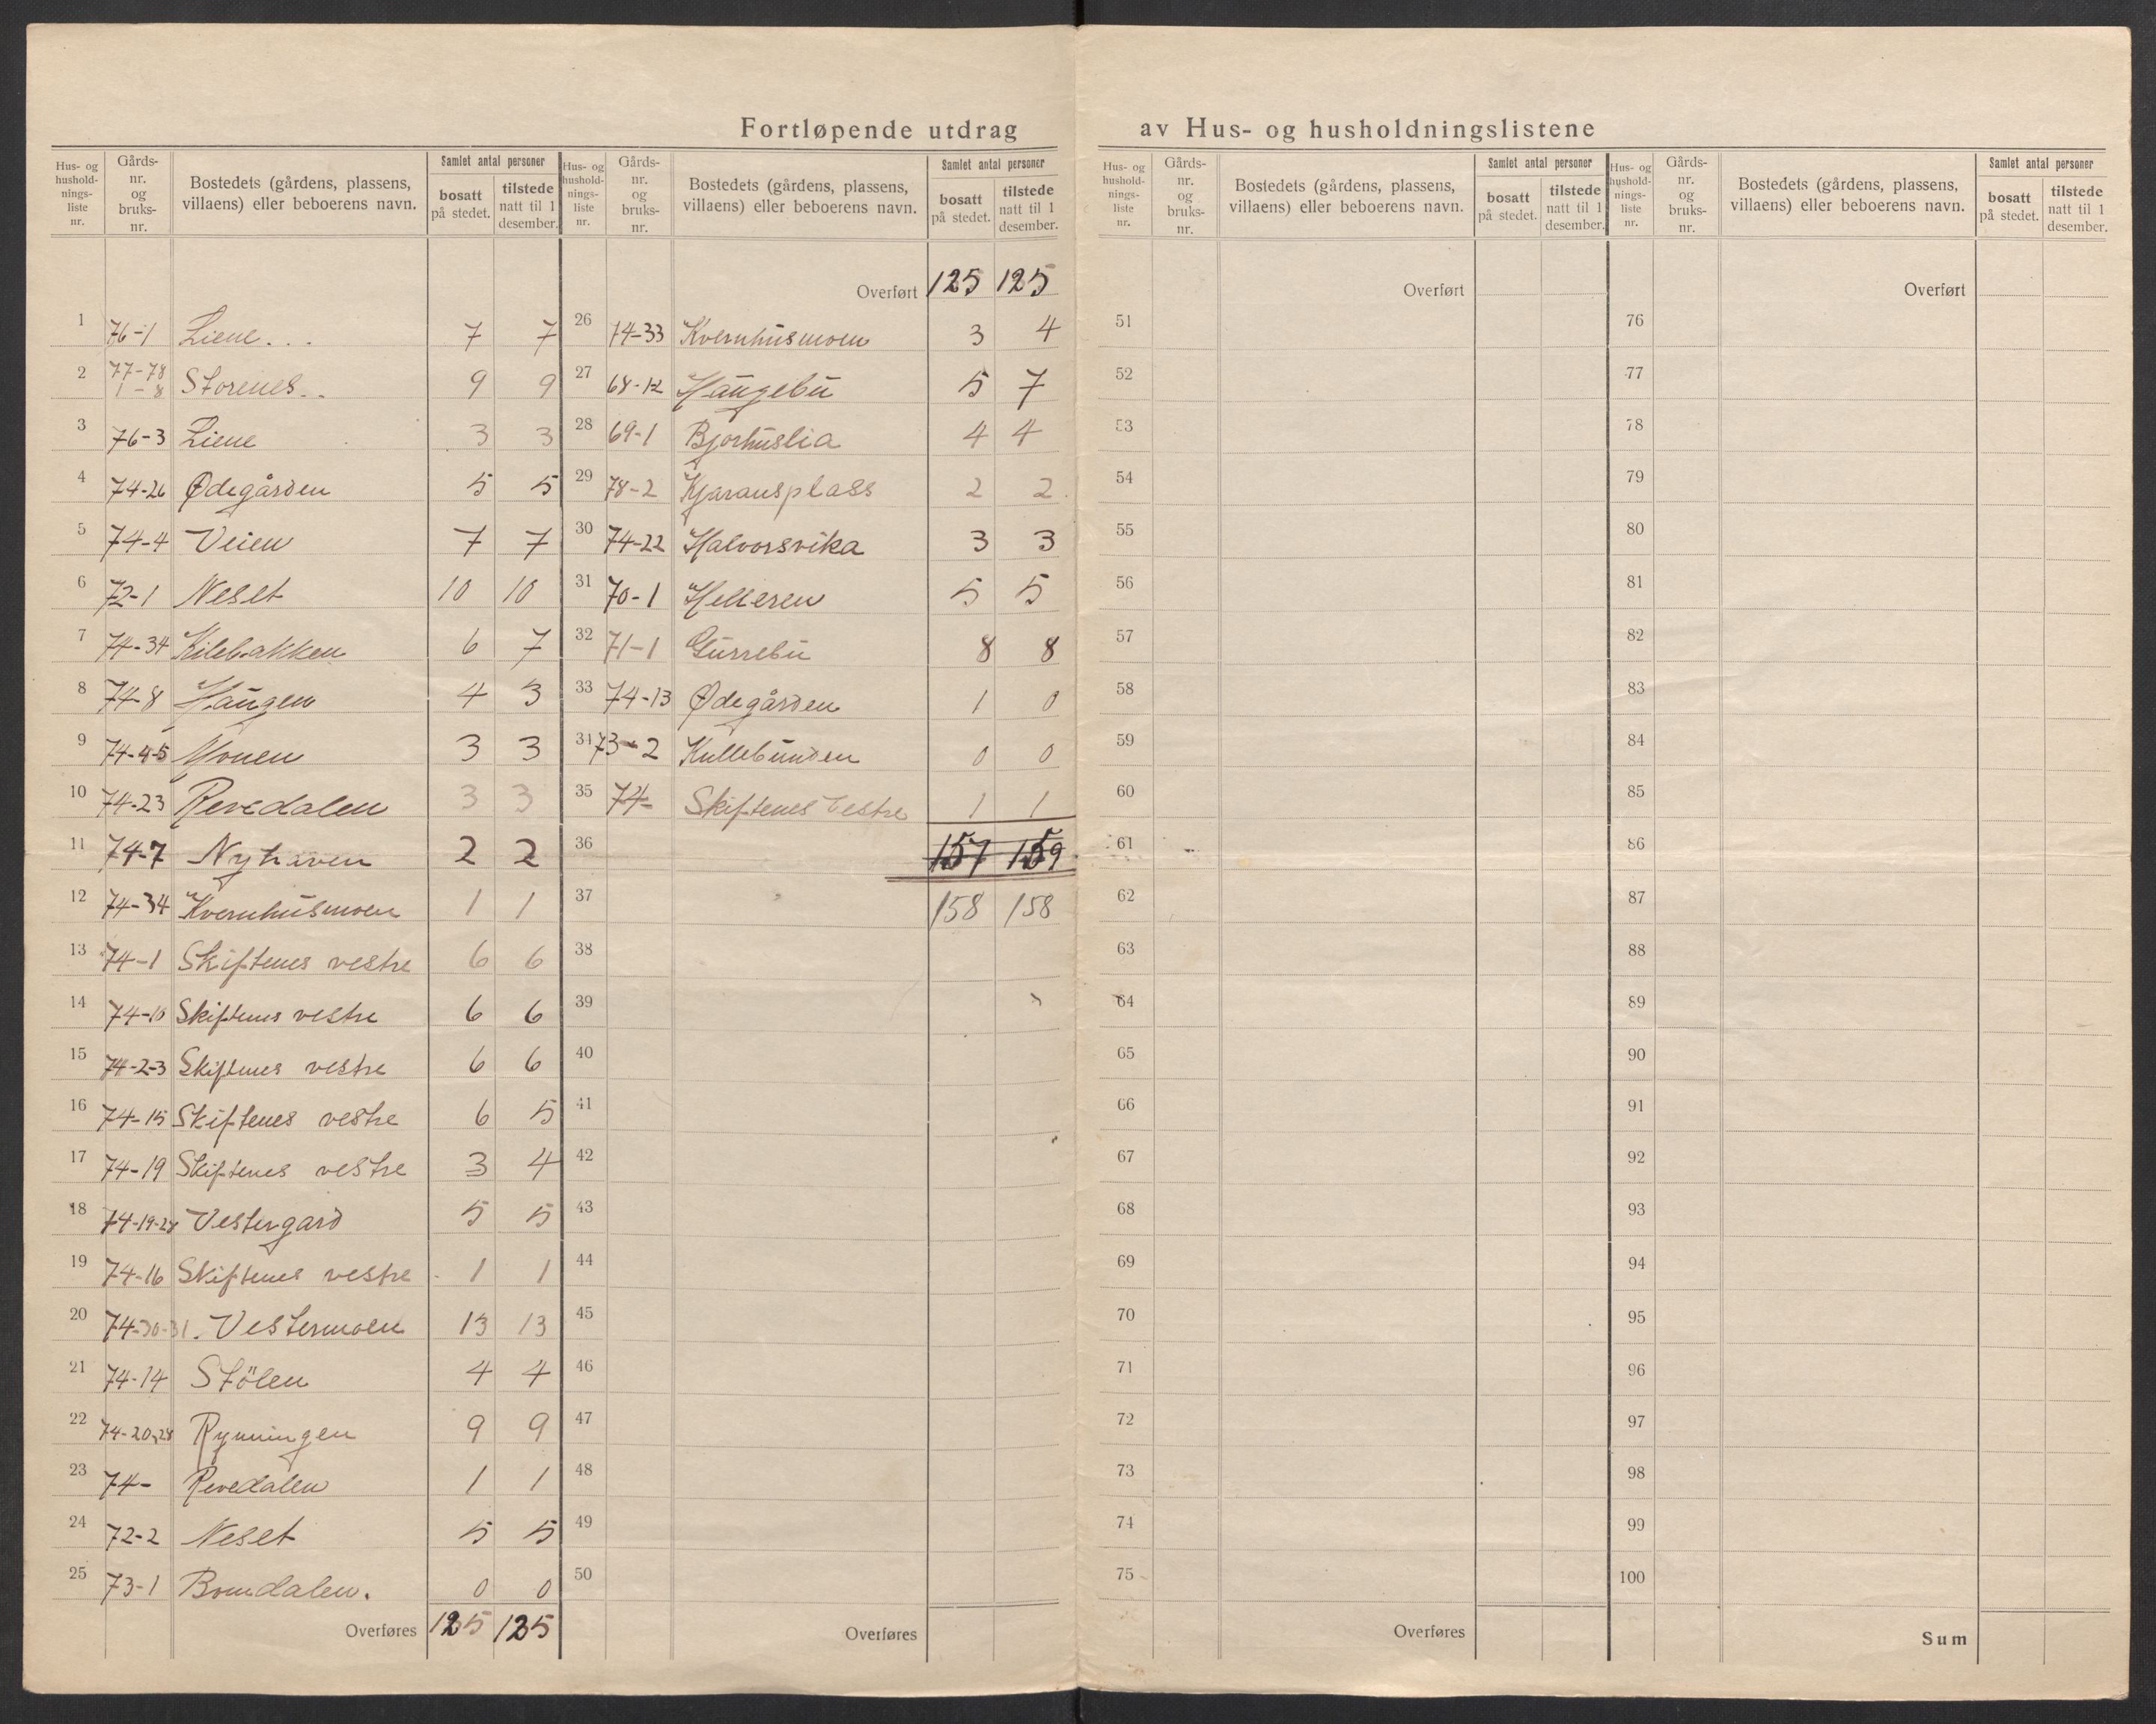 Fortløpende utdrag av Hus- og husholdningslistene
Hus- og husholdnings-liste nr. | Gårds-nr. og bruks-nr. | Bostedets (gårdens, plassens, villaens) eller beboerens navn. | Samlet antal personer | bosatt på stedet. | tilstede natt til 1 desember.
1 76-1 Liene... 7 7
2 77-78 1-8 Storenes.. 9 9
3 76-3 Liene 3 3
4 74-26 Ødegården 5 5
5 74-4 Veien 7 7
6 72-1 Neset 10 10
7 74-34 Kilebakken 6 7
8 74-8 Haugen 4 3
9 74-4-5 Monen 3 3
10 74-23 Revedalen 3 3
11 74-7 Nyhaven 2 2
12 74-34 Kvernhusmoen 1 1
13 74-1 Skiftenes vestre 6 6
14 74-10 Skiftenes vestre 6 6
15 74-2-3 Skiftenes vestre 6 6
16 74-15 Skiftenes vestre 6 5
17 74-19 Skiftenes vestre 3 4
18 74-19-27 Vestergard 5 5
19 74-16 Skiftenes vestre 1 1
20 74-30-31. Vestermoen 13 13
21 74-14 Stölen 4 4
22 74-20,28 Rynningen 9 9
23 74- Revedalen 1 1
24 72-2 Neset 5 5
25 73-1 Bomdalen. 0 0
Overføres 125 125
Hus- og hushold-nings-liste nr. | Gårds-nr. og bruks-nr. | Bostedets (gårdens, plassens, villaens) eller beboerens navn. | Samlet antal personer | bosatt på stedet. | tilstede natt til 1 desember.
Overført 125 125
26 74-33 Kvernhusmoen 3 4
27 68-12 Haugebu 5 7
28 69-1 Bjorhuslia 4 4
29 78-2 Kjøransplass 2 2
30 74-22 Halvorsvika 3 3
31 70-1 Helleren 5 5
32 71-1 Gurrebu 8 8
33 74-13 Ødegården 1 0
34 73-2 Kullebunden 0 0
35 74- Skiftenes vestre 1 1
36 157 159
37 158 158
38
39
40
41
42
43
44
45
46
47
48
49
50
Overføres
Hus- og hushold-nings-liste nr. | Gårds-nr. og bruks-nr. | Bostedets (gårdens, plassens, villaens) eller beboerens navn. | Samlet antal personer | bosatt på stedet. | tilstede natt til 1 desember.
Overført
51
52
53
54
55
56
57
58
59
60
61
62
63
64
65
66
67
68
69
70
71
72
73
74
75
Overføres
Hus- og hushold-nings-liste nr. | Gårds-nr. og bruks-nr. | Bostedets (gårdens, plassens, villaens) eller beboerens navn. | Samlet antal personer | bosatt på stedet. | tilstede natt til 1 desember.
Overført
76
77
78
79
80
81
82
83
84
85
86
87
88
89
90
91
92
93
94
95
96
97
98
99
100
Sum